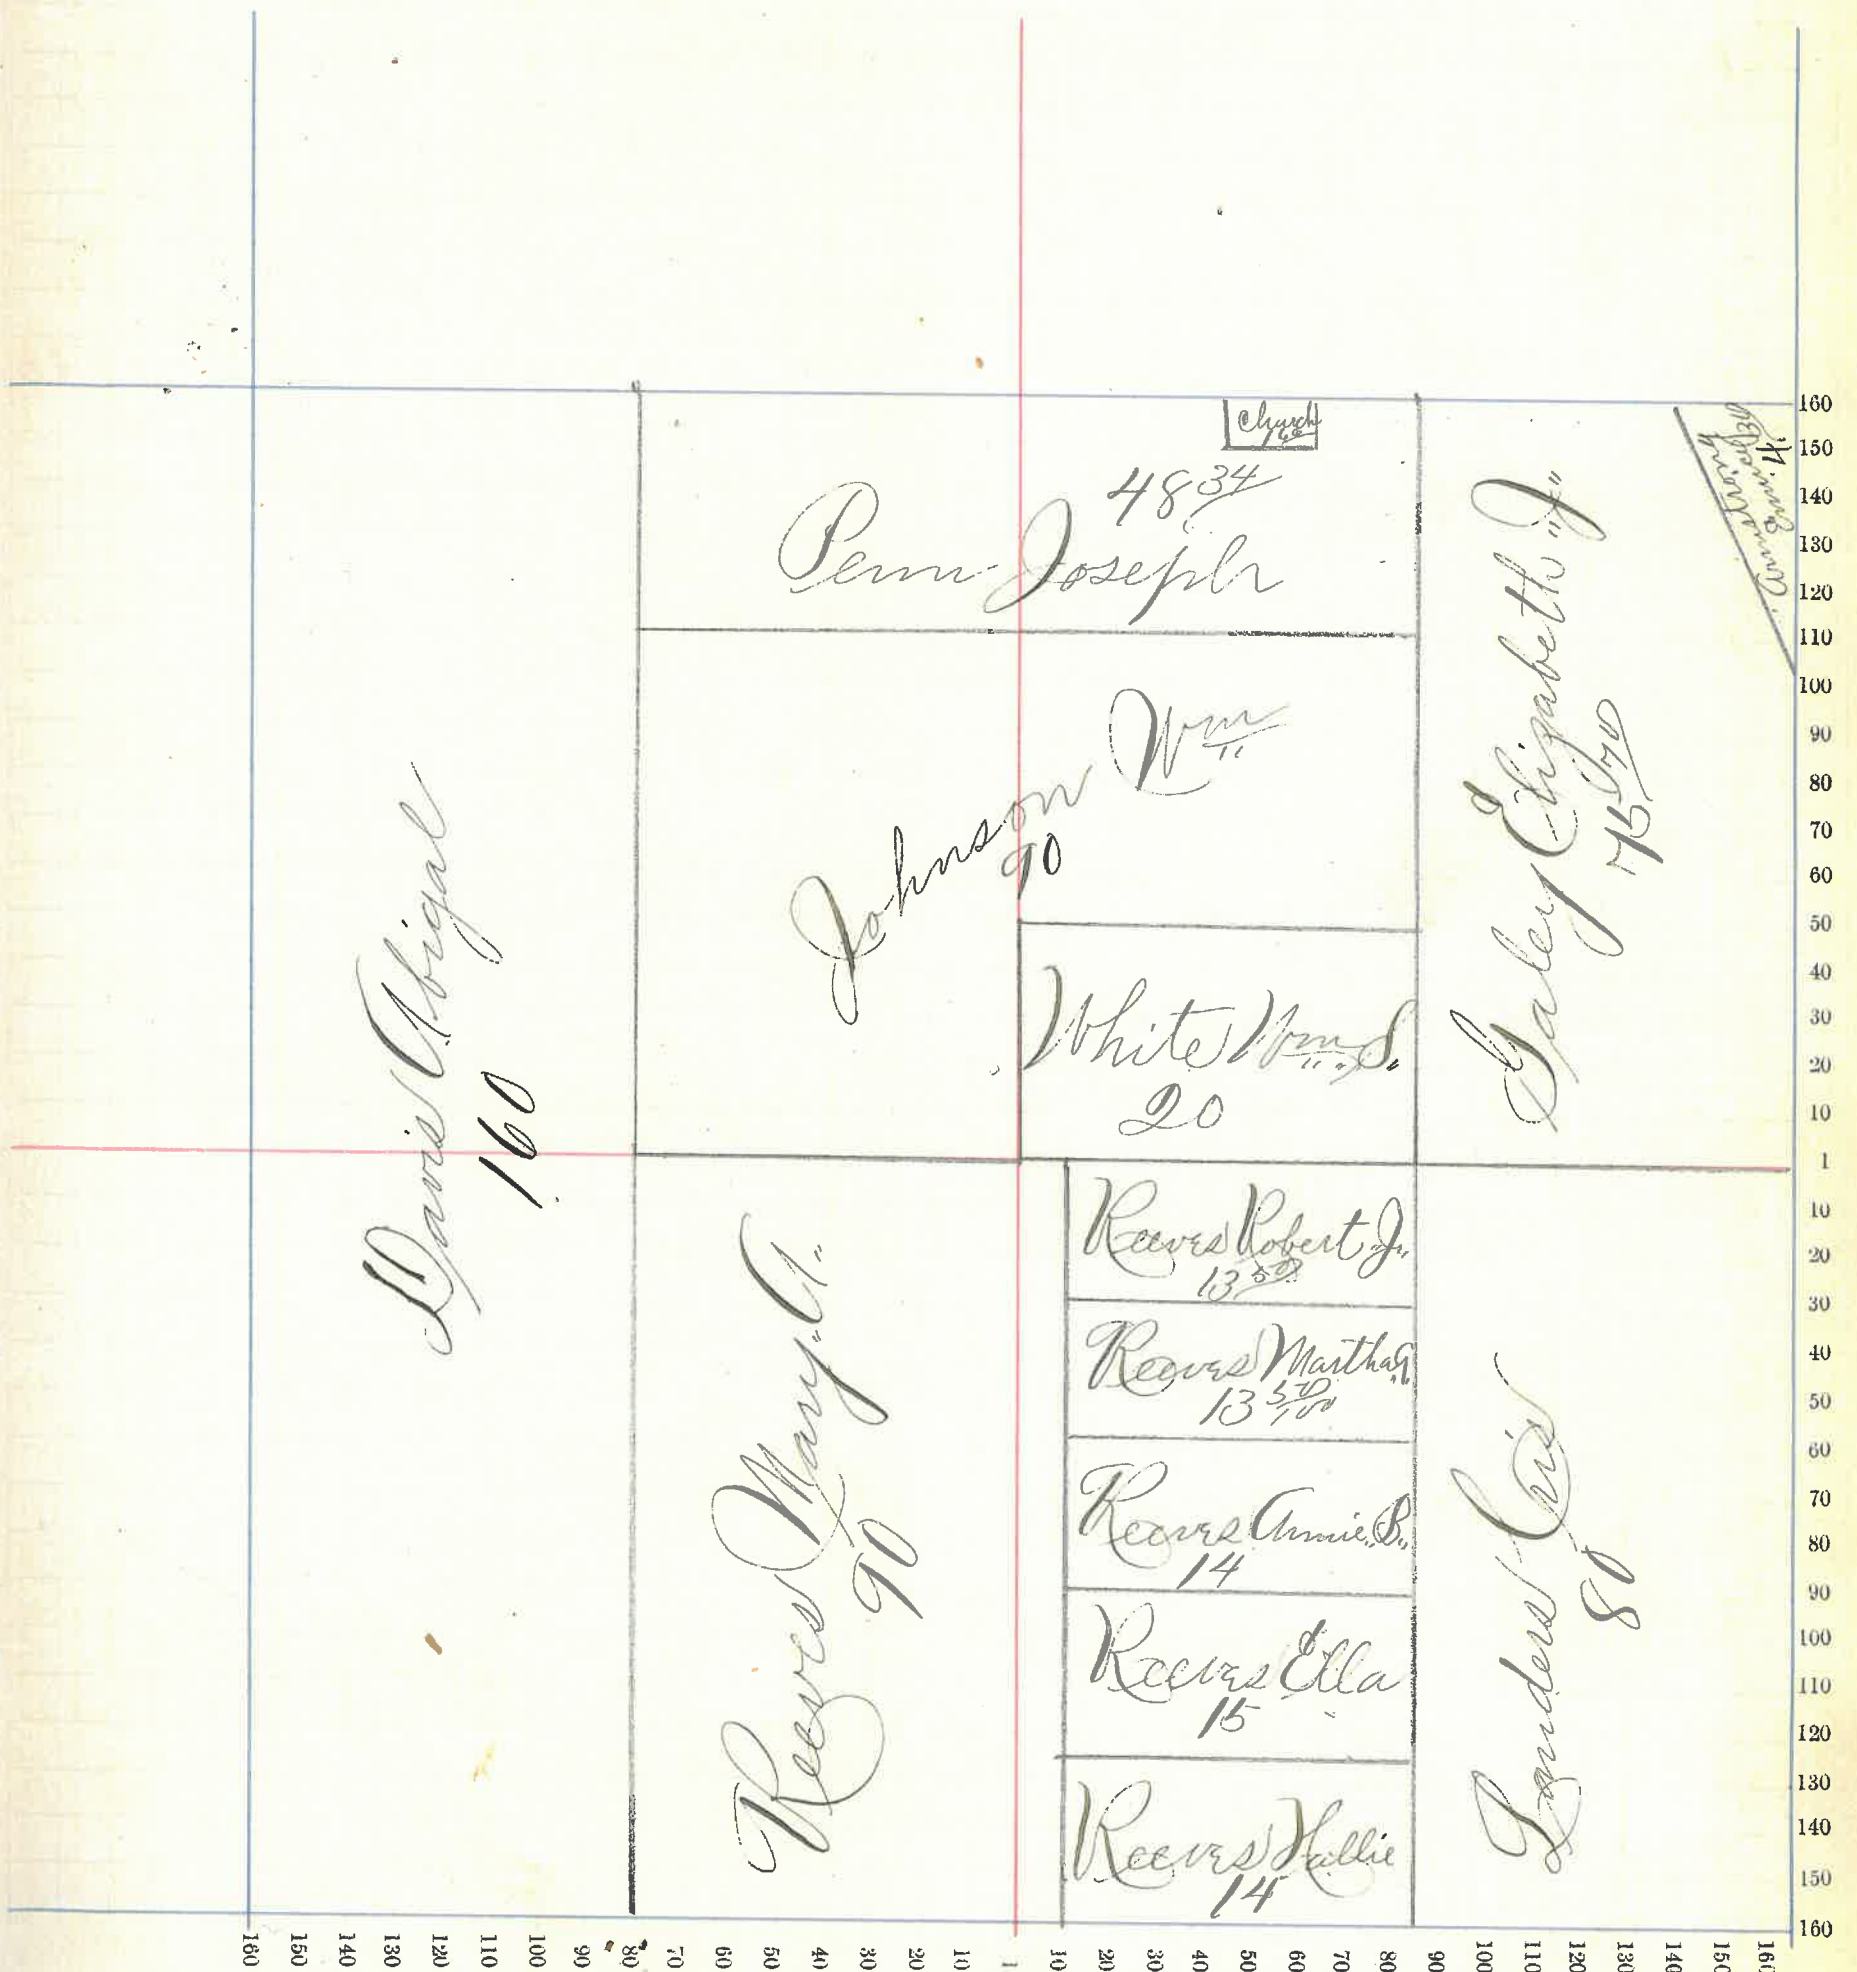 Church
1 66
48 34
Penn Joseph
Johnson Wm
90
White Wm S.
20
Galey Elizabeth "J"
75 70
4.
Davis Abigal
160
Reeves Mary. A.
90
Reeves Robert. J.
13 50
Reeves Martha
13 50/100
Reeves Annie. B.
14
Reeves Ella
15
Reeves Hallie
14
Landers Cris
80
160
150
140
130
120
110
100
90
80
70
60
50
40
30
20
10
1
10
20
30
40
50
60
70
80
90
100
110
120
130
140
150
160
160 150 140 130 120 110 100 90 80 70 60 50 40 30 20 10 1 10 20 30 40 50 60 70 80 90 100 110 120 130 140 150 160